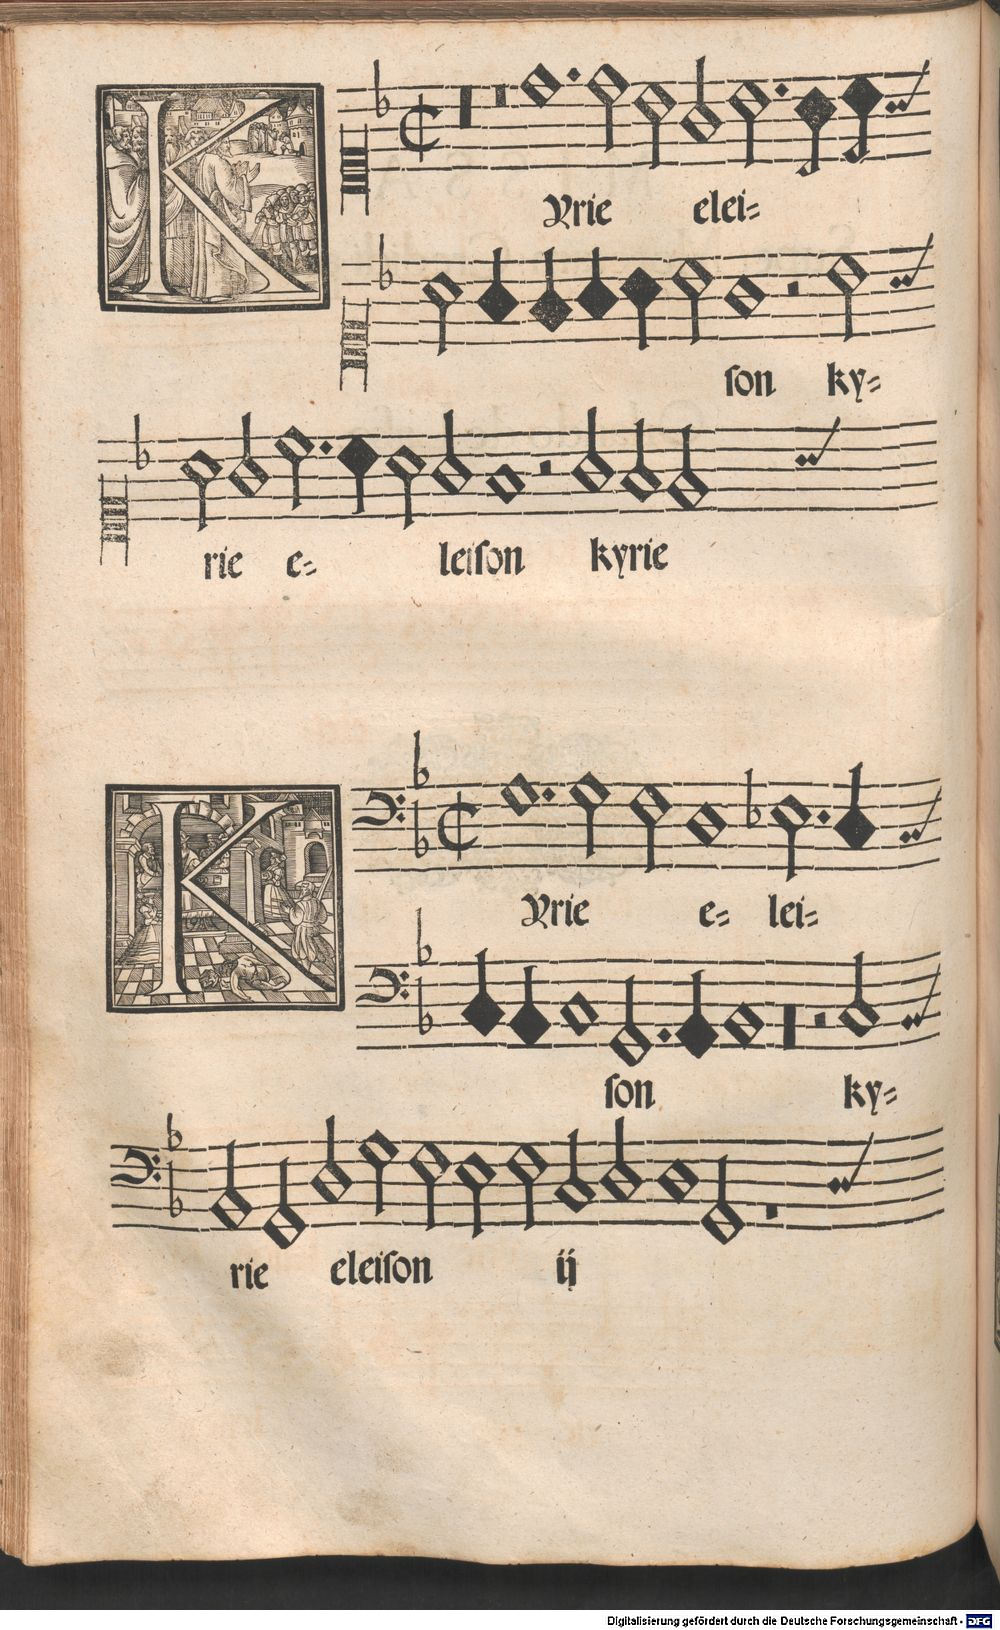 KYrie elei=
ſon ky=
rie e= leiſon kyrie
KYrie e= lei=
ſon ky=
rie eleiſon ij
Digitalisierung gefördert durch die Deutsche Forschungsgemeinschaft - DFG